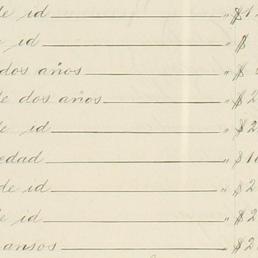 de id „ $1
e id „ $
dos años „ $
de dos años „ $2
de id „ $2
edad „ $1
de id „ $2
de id „ $2
ansos „ $2